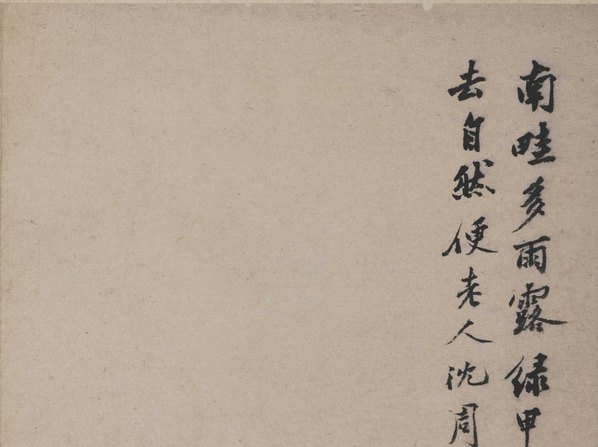 南畦多雨露綠甲
去自然便老人沈周